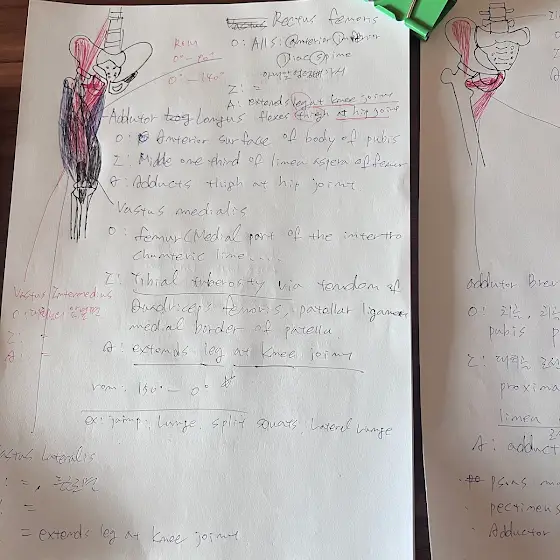 Rectus femoris
O: AIIS: anterior inferior
iliac spine
I: =
A: extends leg at knee joints
flexes thigh at hip joint
ROM
0°-90°
0°-140°
Adductor Longus
O: Anterior surface of body of pubis
I: Middle one third of linea aspera of femur
A: Adducts thigh at hip joint
Vastus medialis
O: femur (Medial part of the intertro
chanteric line....
I: Tibial tuberosity via tendom of
Quadriceps femoris, patallar ligament
medial border of patella
A: extends leg at knee joint
rom: 150° - 0°
ex: jump, lunge, split squats lateral lunge
Vastus Intermedius
O:
I: =
A: =
Vastus Lateralis
: =,
: =
= extends leg at knee joint
adductor Brev
O:
pubis
I:
proxima
linea
A: adduct
psoas
pectineus
Adductor